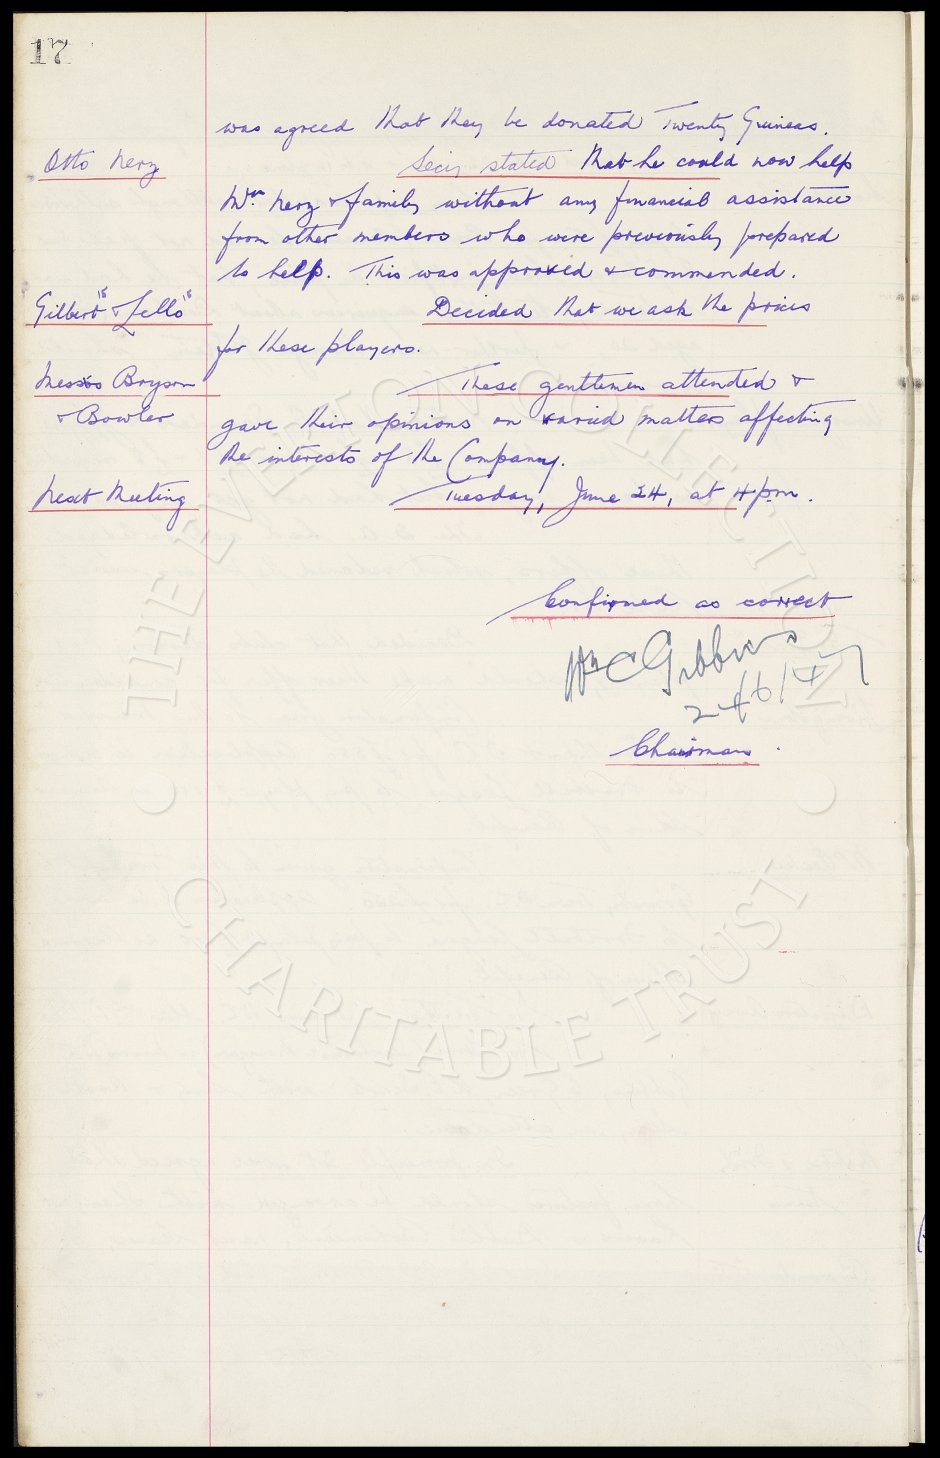 17
was agreed that they be donated Twenty Guineas.
Otto Nerz Secy stated that he could now help
Mrs. Nerz & family without any financial assistance
from other members who were previously prepared
to help. This was approved & commended.
Gilbert & Lello Decided that we ask the prices
for these players.
Messrs Bryson These gentlemen attended &
& Bowler gave their opinions on varied matters affecting
the interests of the Company.
Next Meeting Tuesday, June 24, at 4 pm.
Confirmed as correct
Wm C Gibbins
24/6/47
Chairman.
THE EVERTON COLLECTION
CHARITABLE TRUST